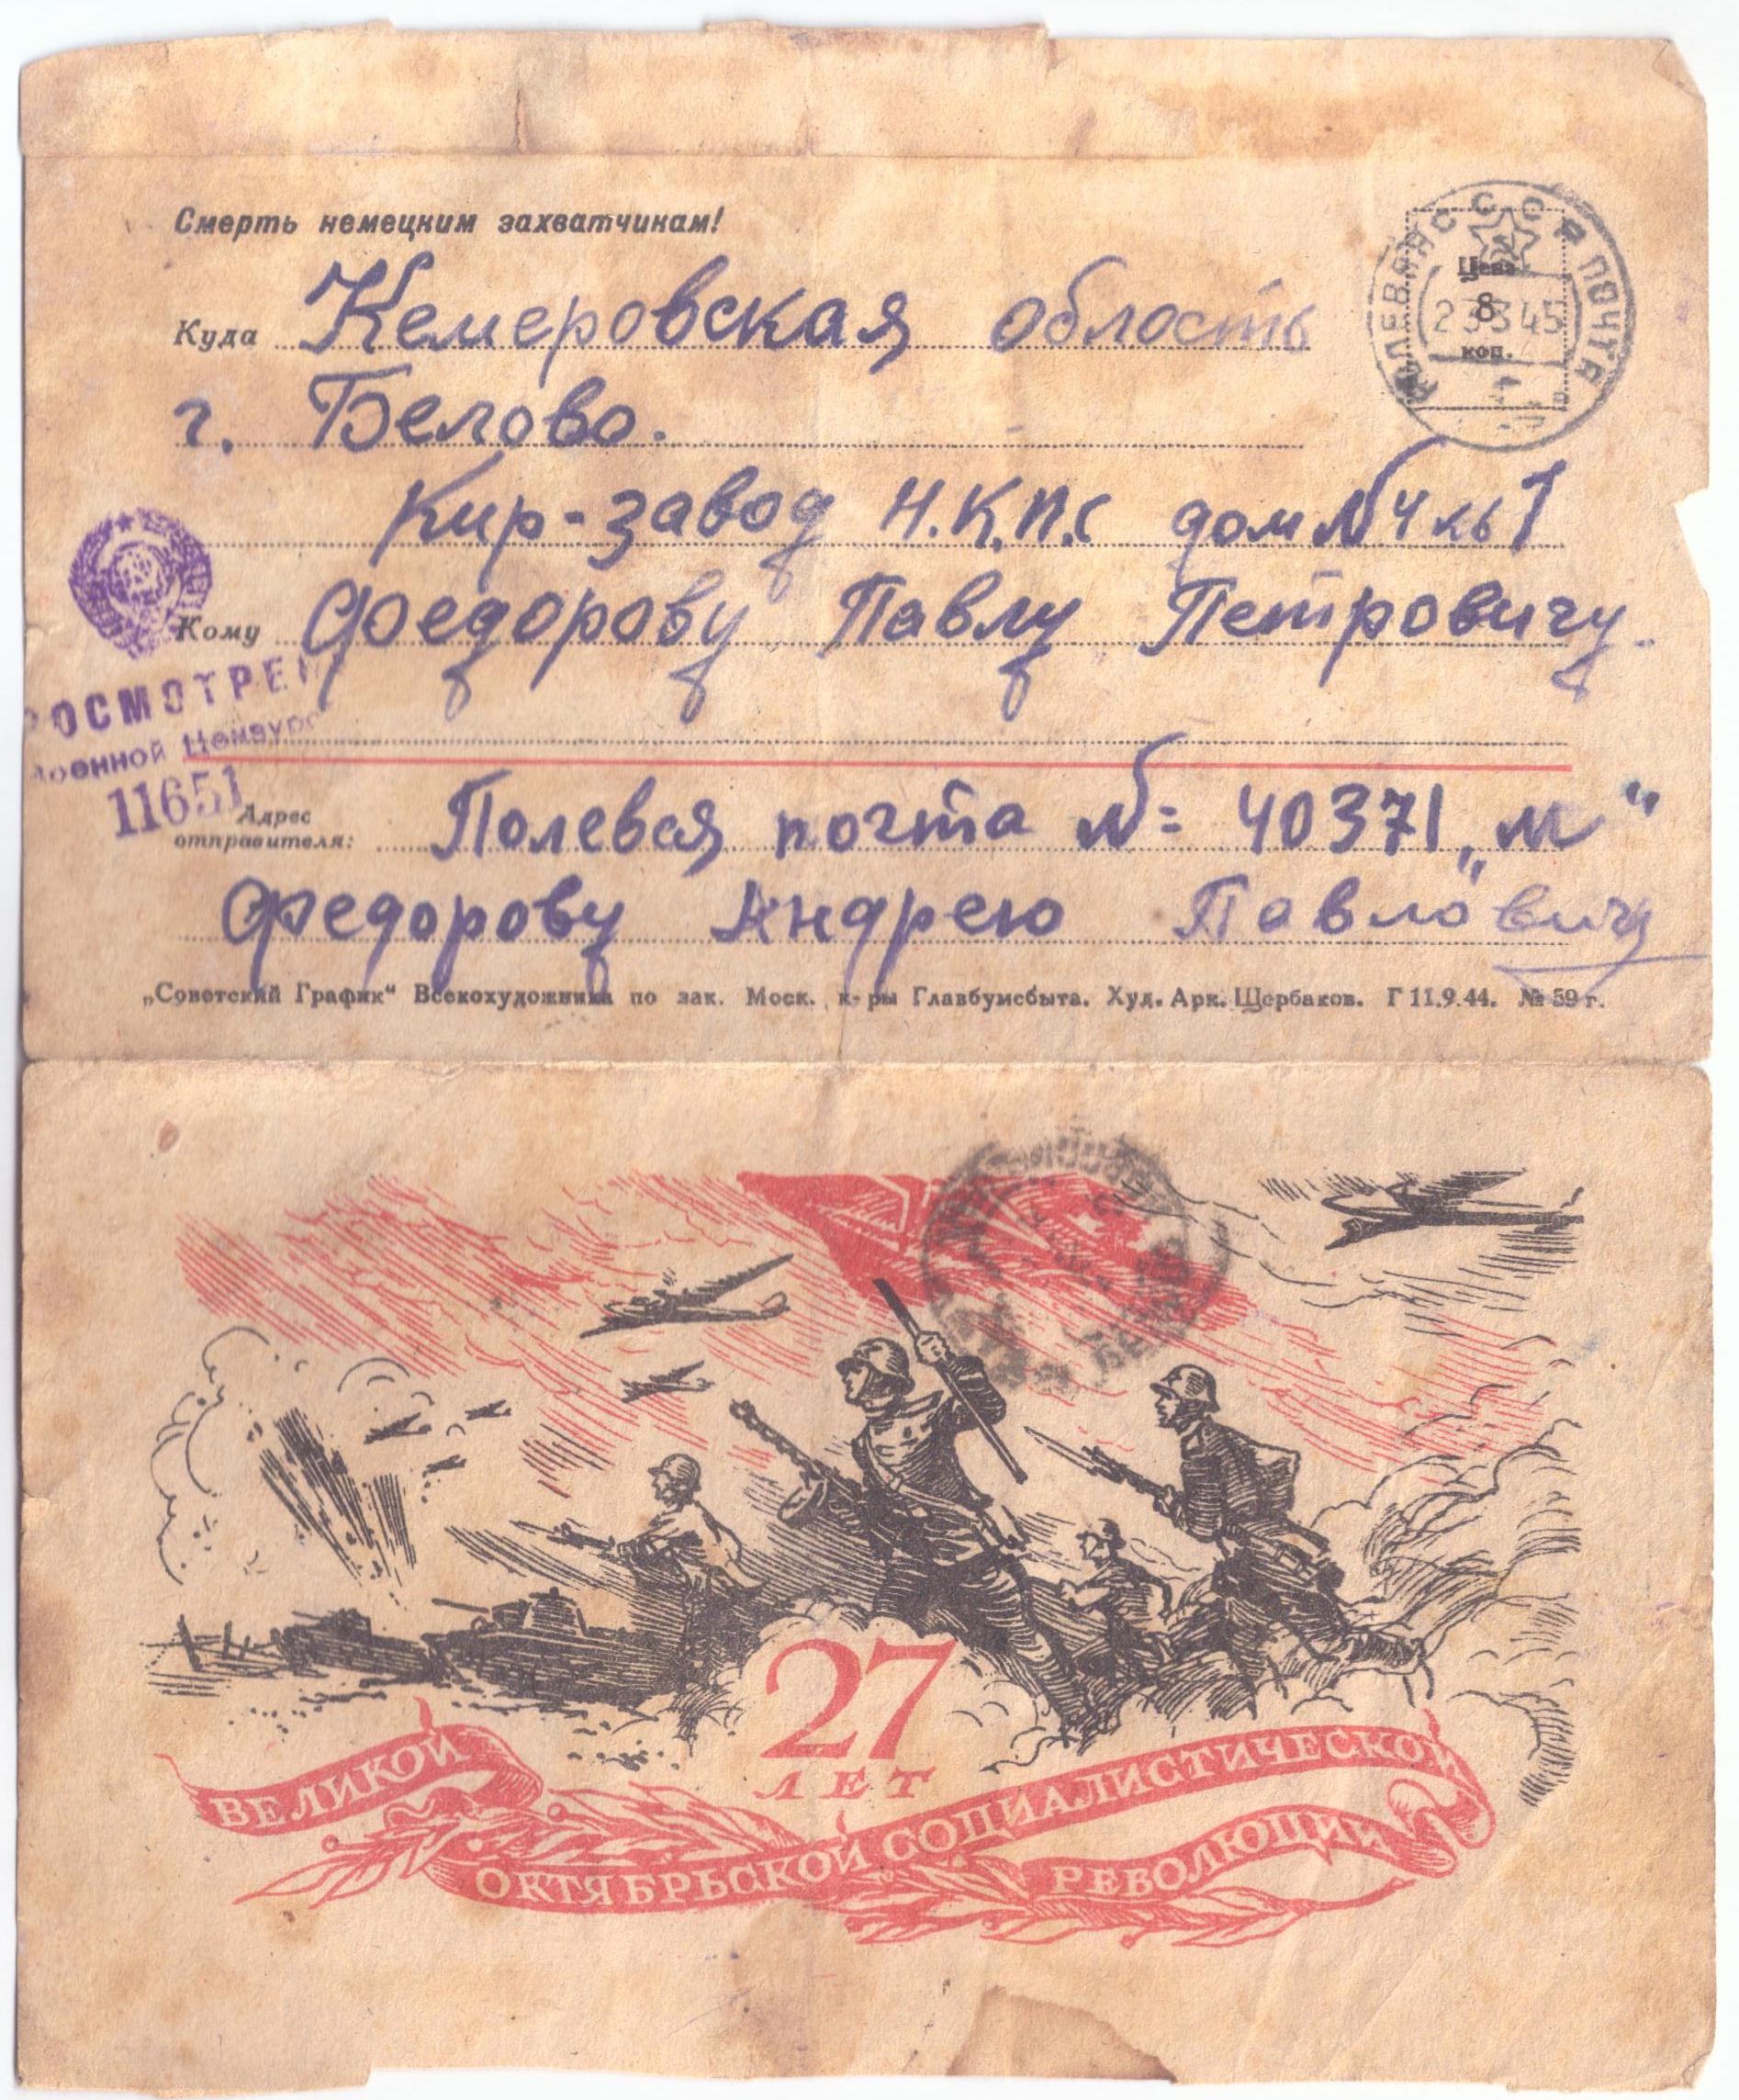 Смерть немецким захватчикам!
Куда Кемеровская область
г. Белово.
Кир-завод Н.К.П.С дом № 4 кв 1
Кому Федорову Павлу Петровичу.
РОСМОТРЕН
военной Цензуро
11651
Адрес
отправителя: Полевая почта №= 40371 „М“
Федорову Андрею Павловичу
„Советский График“ Всекохудожника по зак. Моск. к-ры Главбумсбыта. Худ. Арк. Щербаков. Г 11.9.44. № 59 г.
СССР ПОЛЕВАЯ ПОЧТА
Цена
8
коп.
23 3 45
27
ЛЕТ
ВЕЛИКОЙ
ОКТЯБРЬСКОЙ СОЦИАЛИСТИЧЕСКОЙ
РЕВОЛЮЦИИ